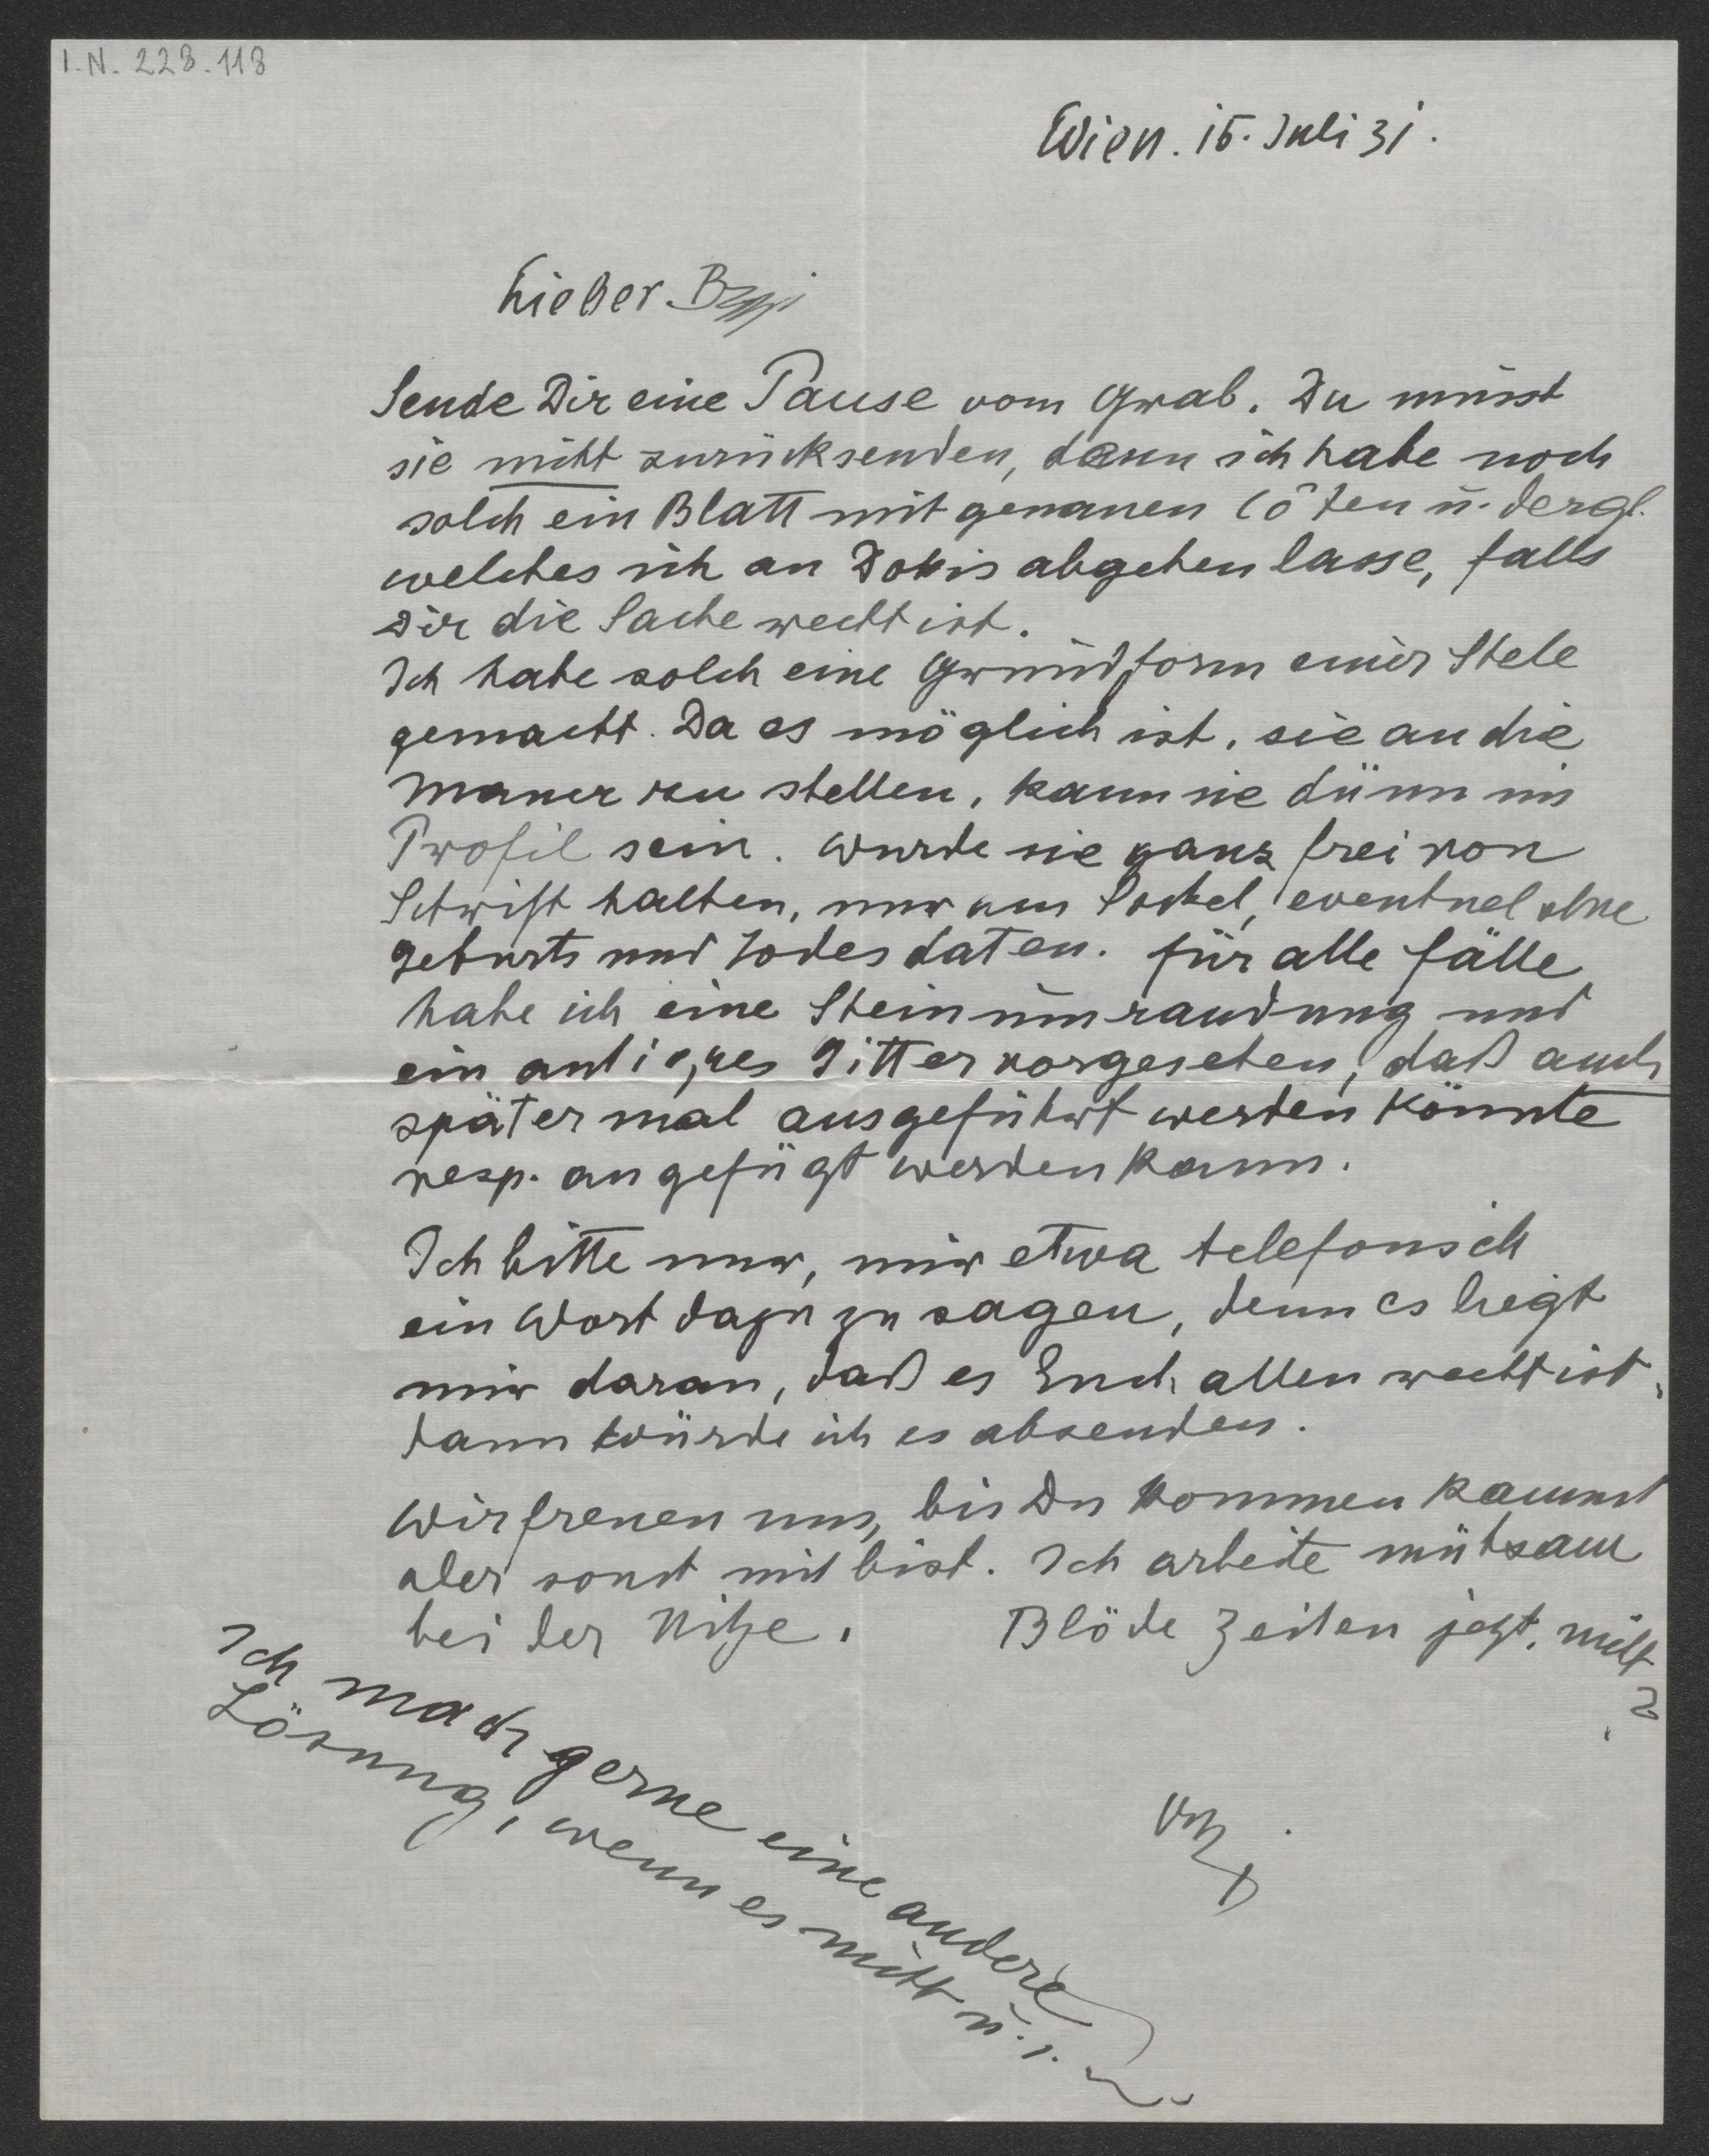 I.N. 228.118
Wien. 15. Juli 31.
Lieber Beppi
Sende Dir eine Pause vom Grab. Du musst
sie nicht zurücksenden, denn ich habe noch
solch ein Blatt mit genauen Côten u. dergl.
welches ich an abgehen lasse, falls
Dir die Sache recht ist.
Ich habe solch eine Grundform einer Stele
gemacht. Da es möglich ist, sie an die
Mauer zu stellen, kann sie dünn im
Profil sein. Würde sie ganz frei von
Schrift halten, nur am Sockel, eventuel ohne
Geburts und Todesdaten. Für alle Fälle
habe ich eine Steinumrandung und
ein Gitter vorgesehen, daß auch
später mal ausgeführt werden könnte
resp. angefügt werden kann.
Ich bitte nur, mir etwa telefonisch
ein Wort dazu zu sagen, denn es liegt
mir daran, daß es Euch allen recht ist,
dann würde ich es absenden.
Wir freuen uns, bis Du kommen kannst
oder sonst mit bist. Ich arbeite mühsam
bei der Hitze. Blöde Zeiten jetzt, nicht
?
Ich mach gerne eine andere
Lösung, wenn es nicht